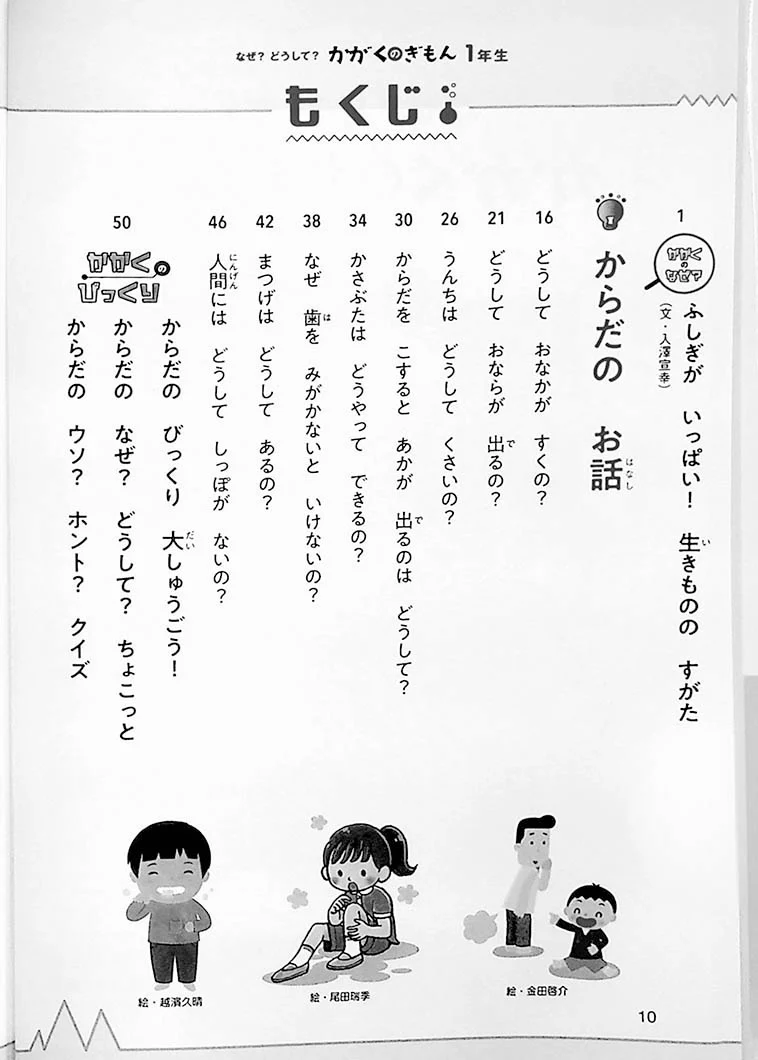 なぜ? どうして? かがくのぎもん 1年生
もくじ
1
かがくのなぜ?
ふしぎが いっぱい! 生きものの すがた
(文・入澤宣幸)
からだの お話
16 どうして おなかが すくの?
21 どうして おならが 出るの?
26 うんちは どうして くさいの?
30 からだを こすると あかが 出るのは どうして?
34 かさぶたは どうやって できるの?
38 なぜ 歯を みがかないと いけないの?
42 まつげは どうして あるの?
46 人間には どうして しっぽが ないの?
50
かがくの
びっくり
からだの びっくり 大しゅうごう!
からだの なぜ? どうして? ちょこっと
からだの ウソ? ホント? クイズ
絵・越濱久晴
絵・尾田瑞季
絵・金田啓介
10